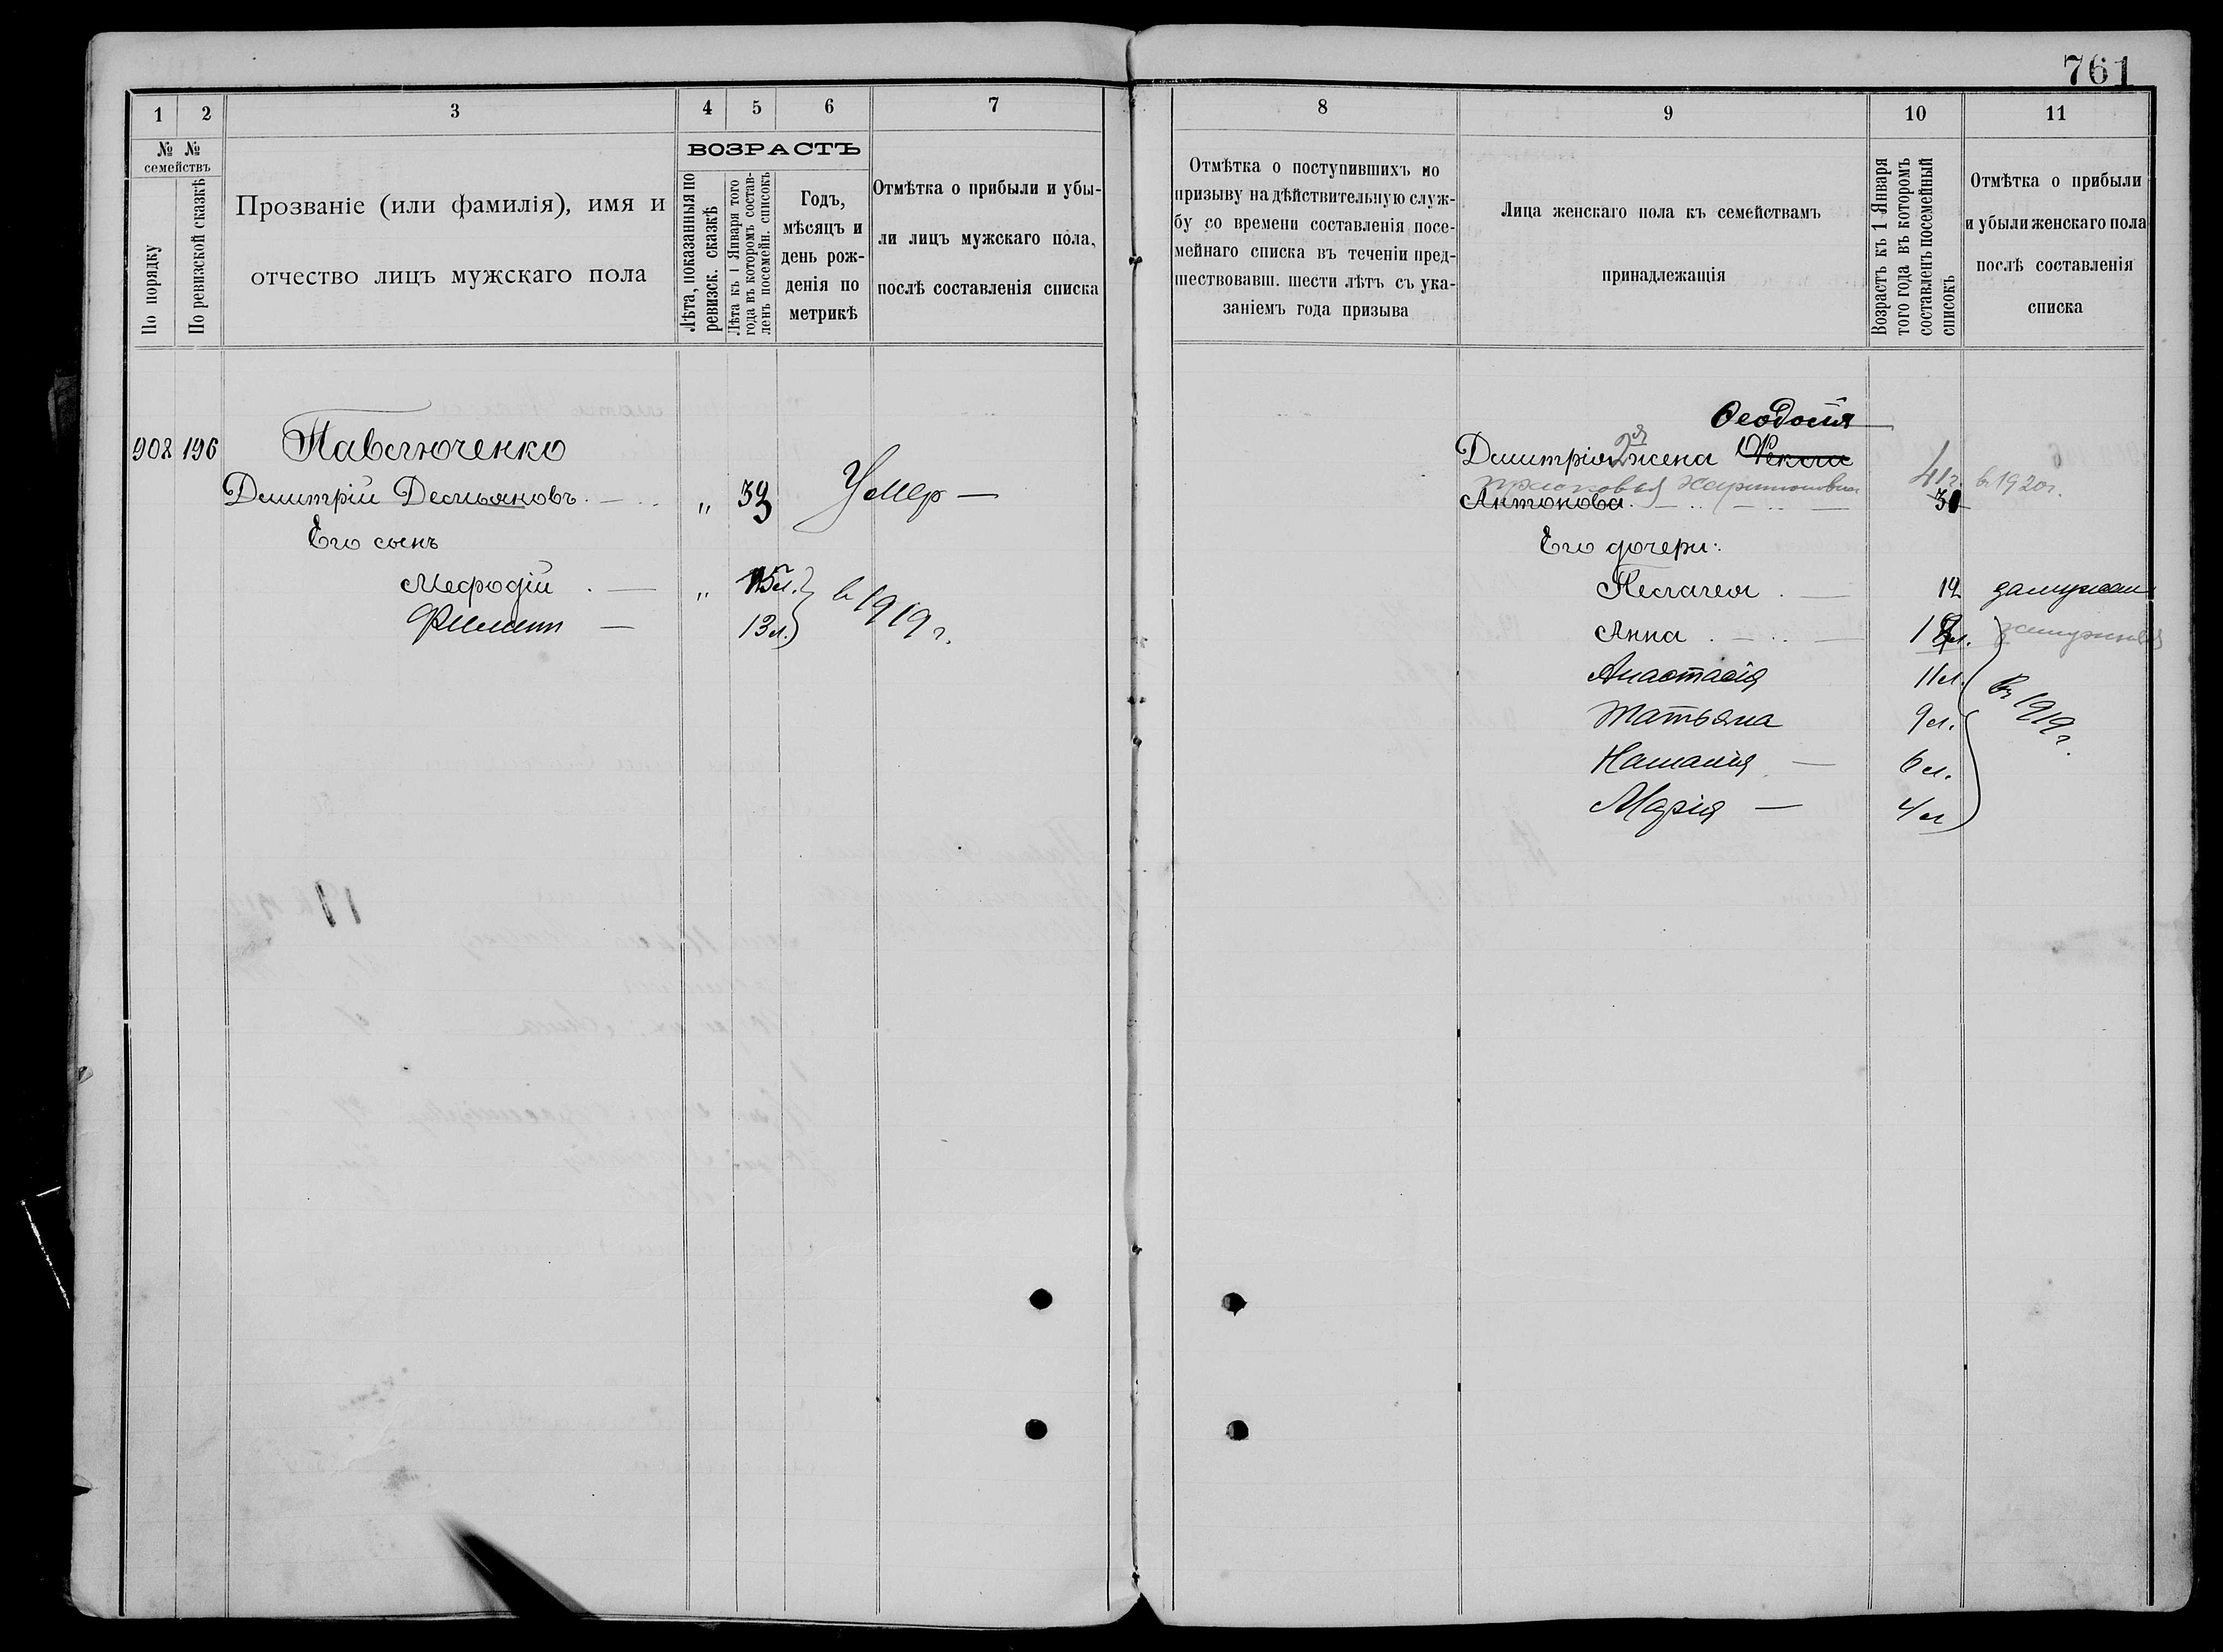 761
1 2 3 4 5 6 7
№ № семействъ
По порядку
По ревизской сказкѣ
Прозваніе (или фамилія), имя и
отчество лицъ мужскаго пола
ВОЗРАСТЪ
Лѣта, показанныя по
ревизск. сказкѣ
Лѣта къ 1 Января того
года въ которомъ состав-
ленъ посемейн. списокъ
Годъ,
мѣсяцъ и
день рож-
денія по
метрикѣ
Отмѣтка о прибыли и убы-
ли лицъ мужскаго пола,
послѣ составленія списка
8 9 10 11
Отмѣтка о поступившихъ по
призыву на дѣйствительную служ-
бу со времени составленія посе-
мейнаго списка въ теченіи пред-
шествовавш. шести лѣтъ съ ука-
заніемъ года призыва
Лица женскаго пола къ семействамъ
принадлежащія
Возрастъ къ 1 Января
того года въ которомъ
составленъ посемейный
списокъ
Отмѣтка о прибыли
и убыли женскаго пола
послѣ составленія
списка
908 196 Павлюченко
Димитрій Демьяновъ. — „ 39 Умер —
Его сынъ
Мефодій . — „ 15л.
Филипп — 13л. в 1919 г.
Феодосія
Димитрія 2я жена Фекла
Прасковья Харитоновна 41 г. в 1920 г.
Антонова. — 30
Его дочери:
Пелагея . — 12 замужем
Анна . — л. замужняя
Анастасія 11л.
Татьяна 9л. В 1919 г.
Наталія — 6 л.
Марія — 4 л